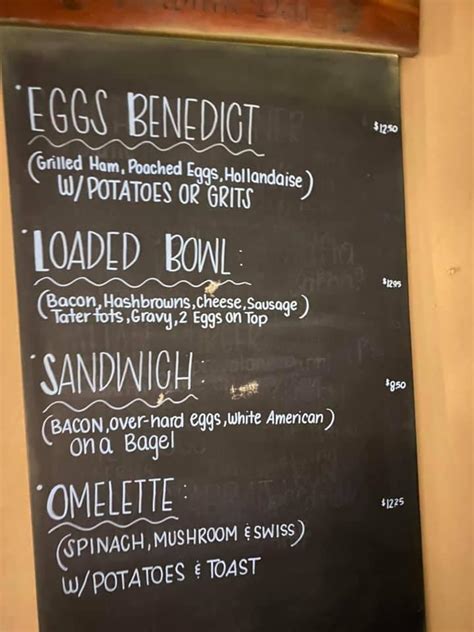 EGGS BENEDICT $12.50
(Grilled Ham, Poached Eggs, Hollandaise)
W/POTATOES OR GRITS
LOADED BOWL: $12.95
(Bacon, Hashbrowns, cheese, Sausage
Tater tots, Gravy, 2 Eggs on Top)
SANDWICH: $8.50
(BACON, over-hard eggs, white American)
on a Bagel
OMELETTE: $12.25
(SPINACH, MUSHROOM & SWISS)
W/POTATOES & TOAST